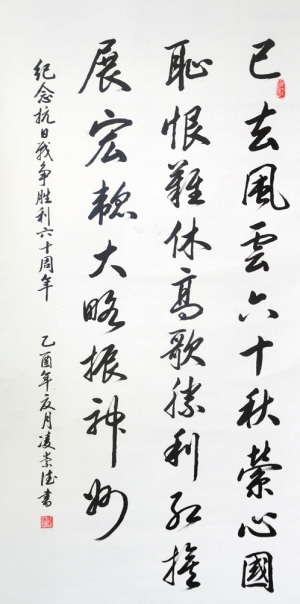 已去風雲六十秋縈心國
恥恨難休高歌勝利紅旗
展宏韜大略振神州
紀念抗日戰争胜利六十周年
乙酉年夏月凌崇德書